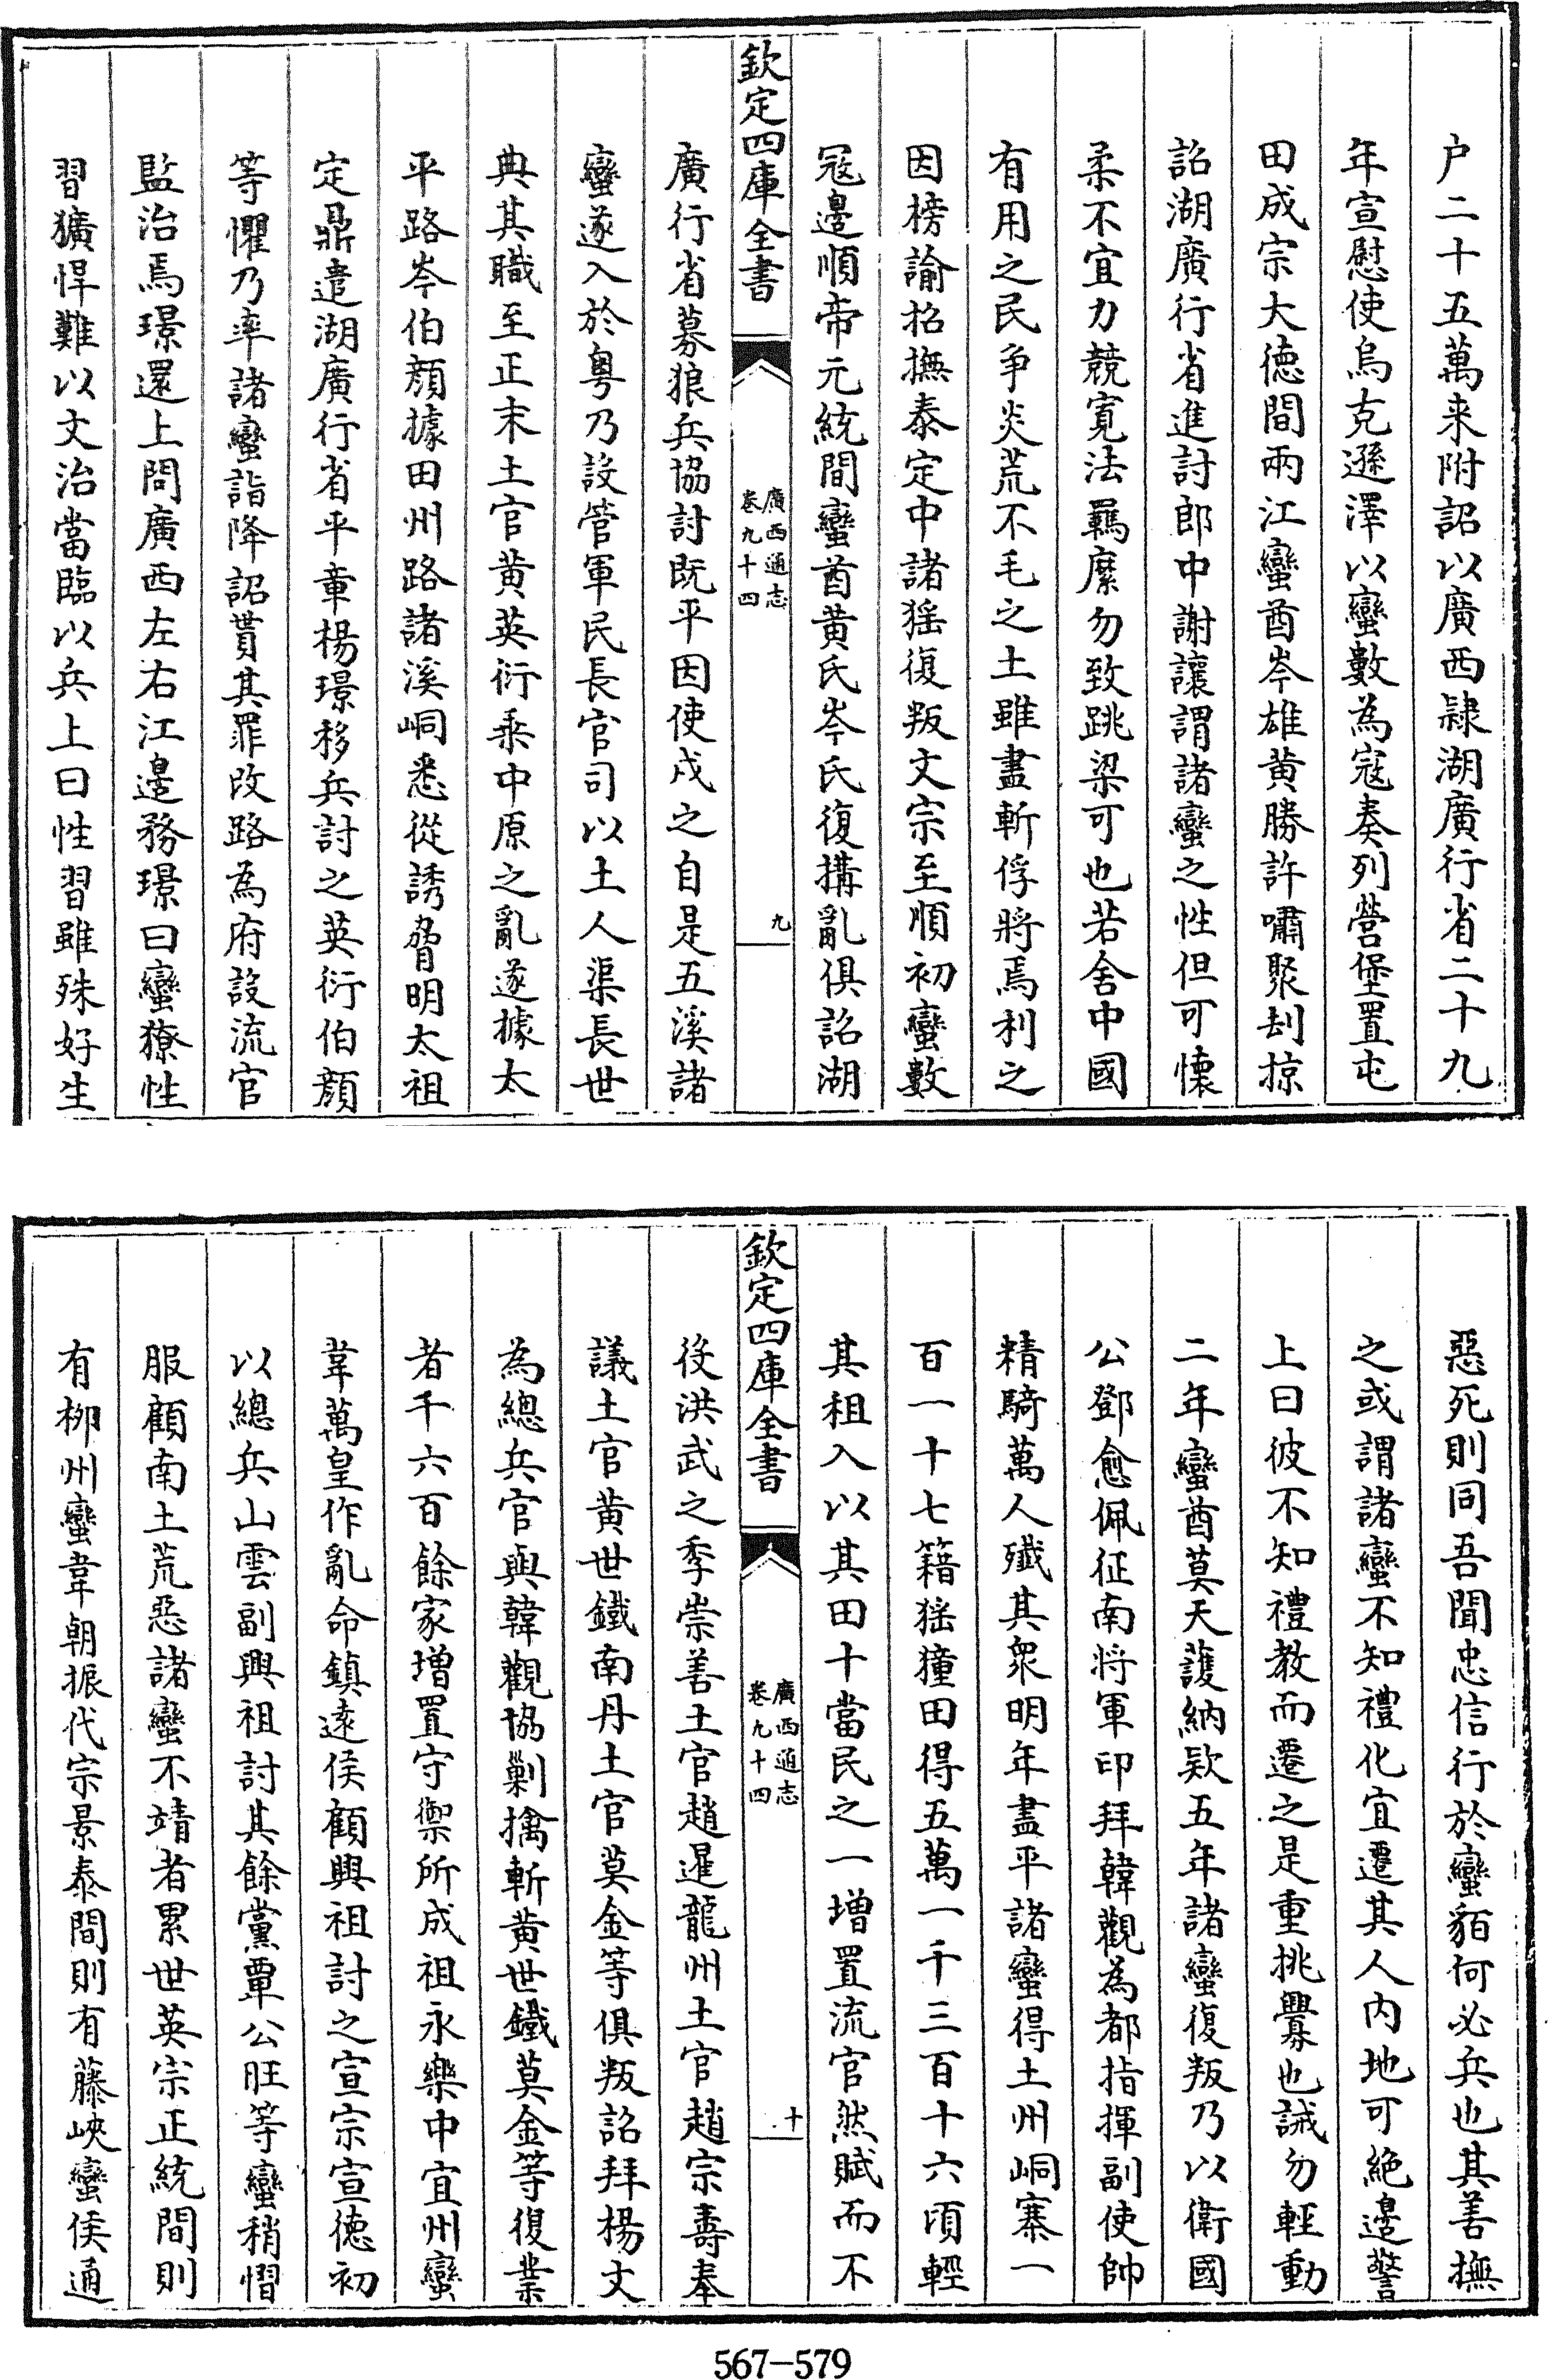 户二十五萬来附詔以廣西隷湖廣行省二十九
年宣慰使烏克遜澤以蠻數為寇奏列營堡置屯
田成宗大徳間兩江蠻酋岑雄黄勝許嘯聚刦掠
詔湖廣行省進討郎中謝讓謂諸蠻之性但可懷
柔不宜力競寛法羈縻勿致跳梁可也若舍中國
有用之民争炎荒不毛之土雖盡斬俘將焉利之
因榜諭招撫泰定中諸猺復叛文宗至順初蠻數
冦邊順帝元統間蠻酋黄氏岑氏復搆亂俱詔湖
欽定四庫全書
廣西通志
卷九十四
九
廣行省募狼兵協討既平因使戍之自是五溪諸
蠻遂入於粤乃設管軍民長官司以土人渠長世
典其職至正末土官黄英衍乗中原之亂遂據太
平路岑伯顔據田州路諸溪峒悉從誘脅明太祖
定鼎遣湖廣行省平章楊璟移兵討之英衍伯顔
等懼乃率諸蠻詣降詔貰其罪改路為府設流官
監治焉璟還上問廣西左右江邊務璟曰蠻獠性
習獷悍難以文治當臨以兵上曰性習雖殊好生
惡死則同吾聞忠信行於蠻貊何必兵也其善撫
之或謂諸蠻不知禮化宜遷其人内地可絶邊警
上曰彼不知禮教而遷之是重挑釁也誡勿輕動
二年蠻酋莫天護納欵五年諸蠻復叛乃以衛國
公鄧愈佩征南将軍印拜韓觀為都指揮副使帥
精騎萬人殲其衆明年盡平諸蠻得土州峒寨一
百一十七籍猺獞田得五萬一千三百十六頃輕
其租入以其田十當民之一增置流官然賦而不
欽定四庫全書
廣西通志
卷九十四
十
役洪武之季崇善土官趙暹龍州土官趙宗壽奉
議土官黄世鐵南丹土官莫金等俱叛詔拜楊文
為總兵官與韓觀協剿擒斬黄世鐵莫金等復業
者千六百餘家增置守禦所成祖永樂中宜州蠻
韋萬皇作亂命鎮遠侯顧興祖討之宣宗宣徳初
以總兵山雲副興祖討其餘黨覃公旺等蠻稍慴
服顧南土荒惡諸蠻不靖者累世英宗正統間則
有柳州蠻韋朝振代宗景泰間則有藤峽蠻侯通
567-579